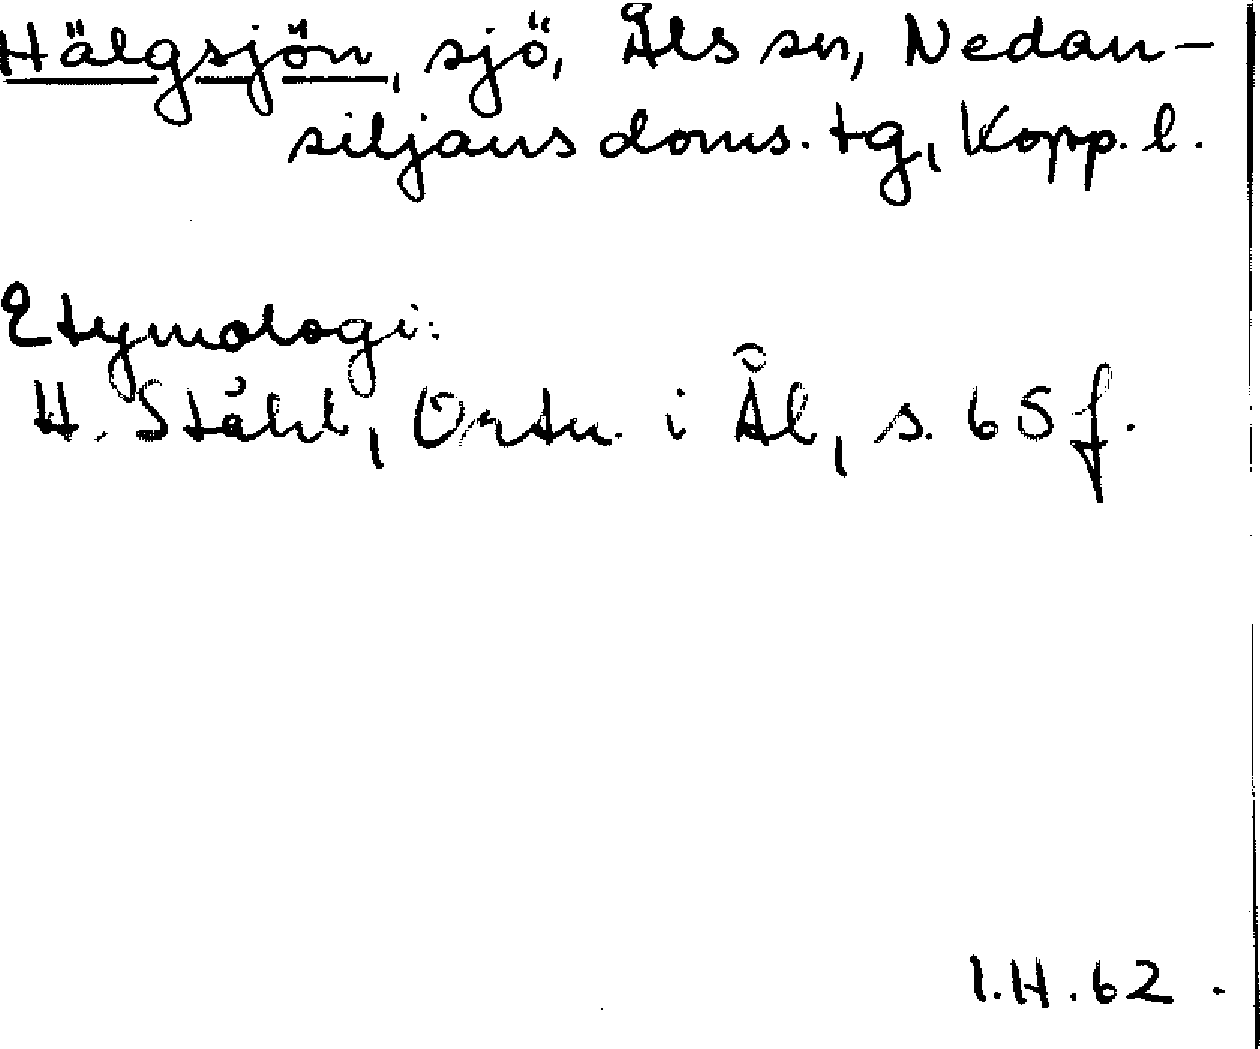 Hälgsjön, sjö, Åls sn, Nedan-
siljans doms. tg, Kopp. l.
Etymologi:
H. Ståhl, Ortn. i Ål, s. 65 f.
I.H. 62.